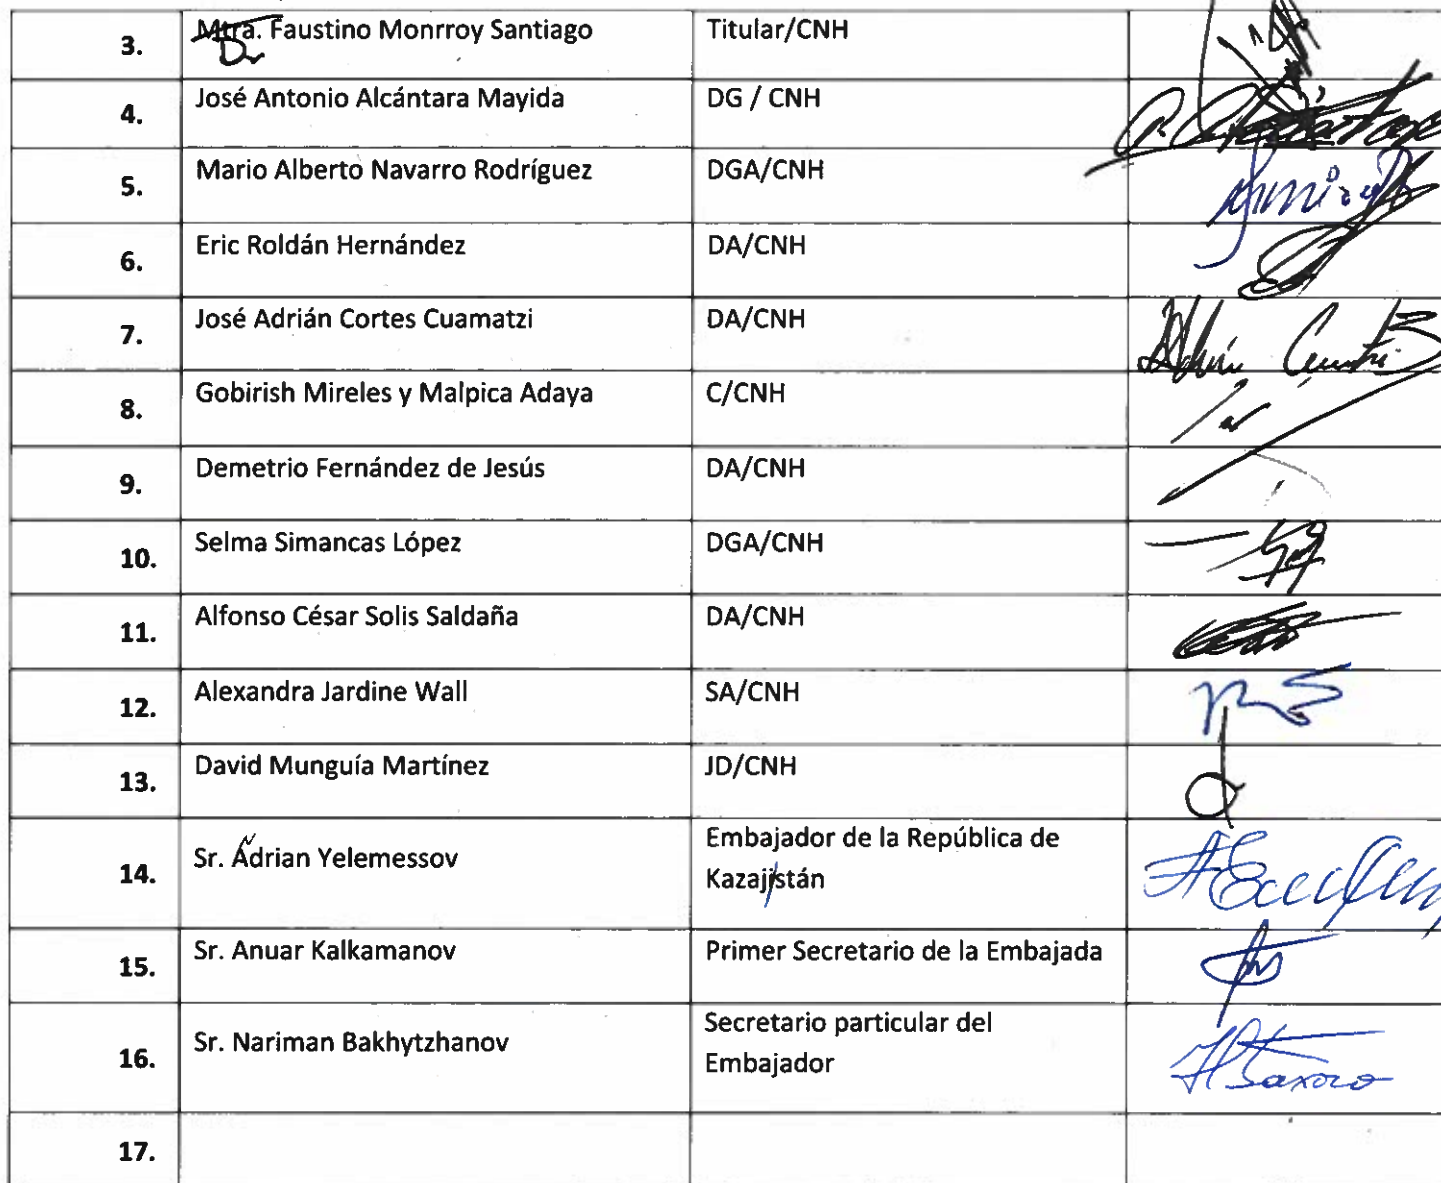 3. Mtra. Faustino Monrroy Santiago Titular/CNH
Dr
4. José Antonio Alcántara Mayida DG / CNH
5. Mario Alberto Navarro Rodríguez DGA/CNH
6. Eric Roldán Hernández DA/CNH
7. José Adrián Cortes Cuamatzi DA/CNH
8. Gobirish Mireles y Malpica Adaya C/CNH
9. Demetrio Fernández de Jesús DA/CNH
10. Selma Simancas López DGA/CNH
11. Alfonso César Solis Saldaña DA/CNH
12. Alexandra Jardine Wall SA/CNH
13. David Munguía Martínez JD/CNH
14. Sr. Adrian Yelemessov Embajador de la República de
Kazajistán
15. Sr. Anuar Kalkamanov Primer Secretario de la Embajada
16. Sr. Nariman Bakhytzhanov Secretario particular del
Embajador
17.